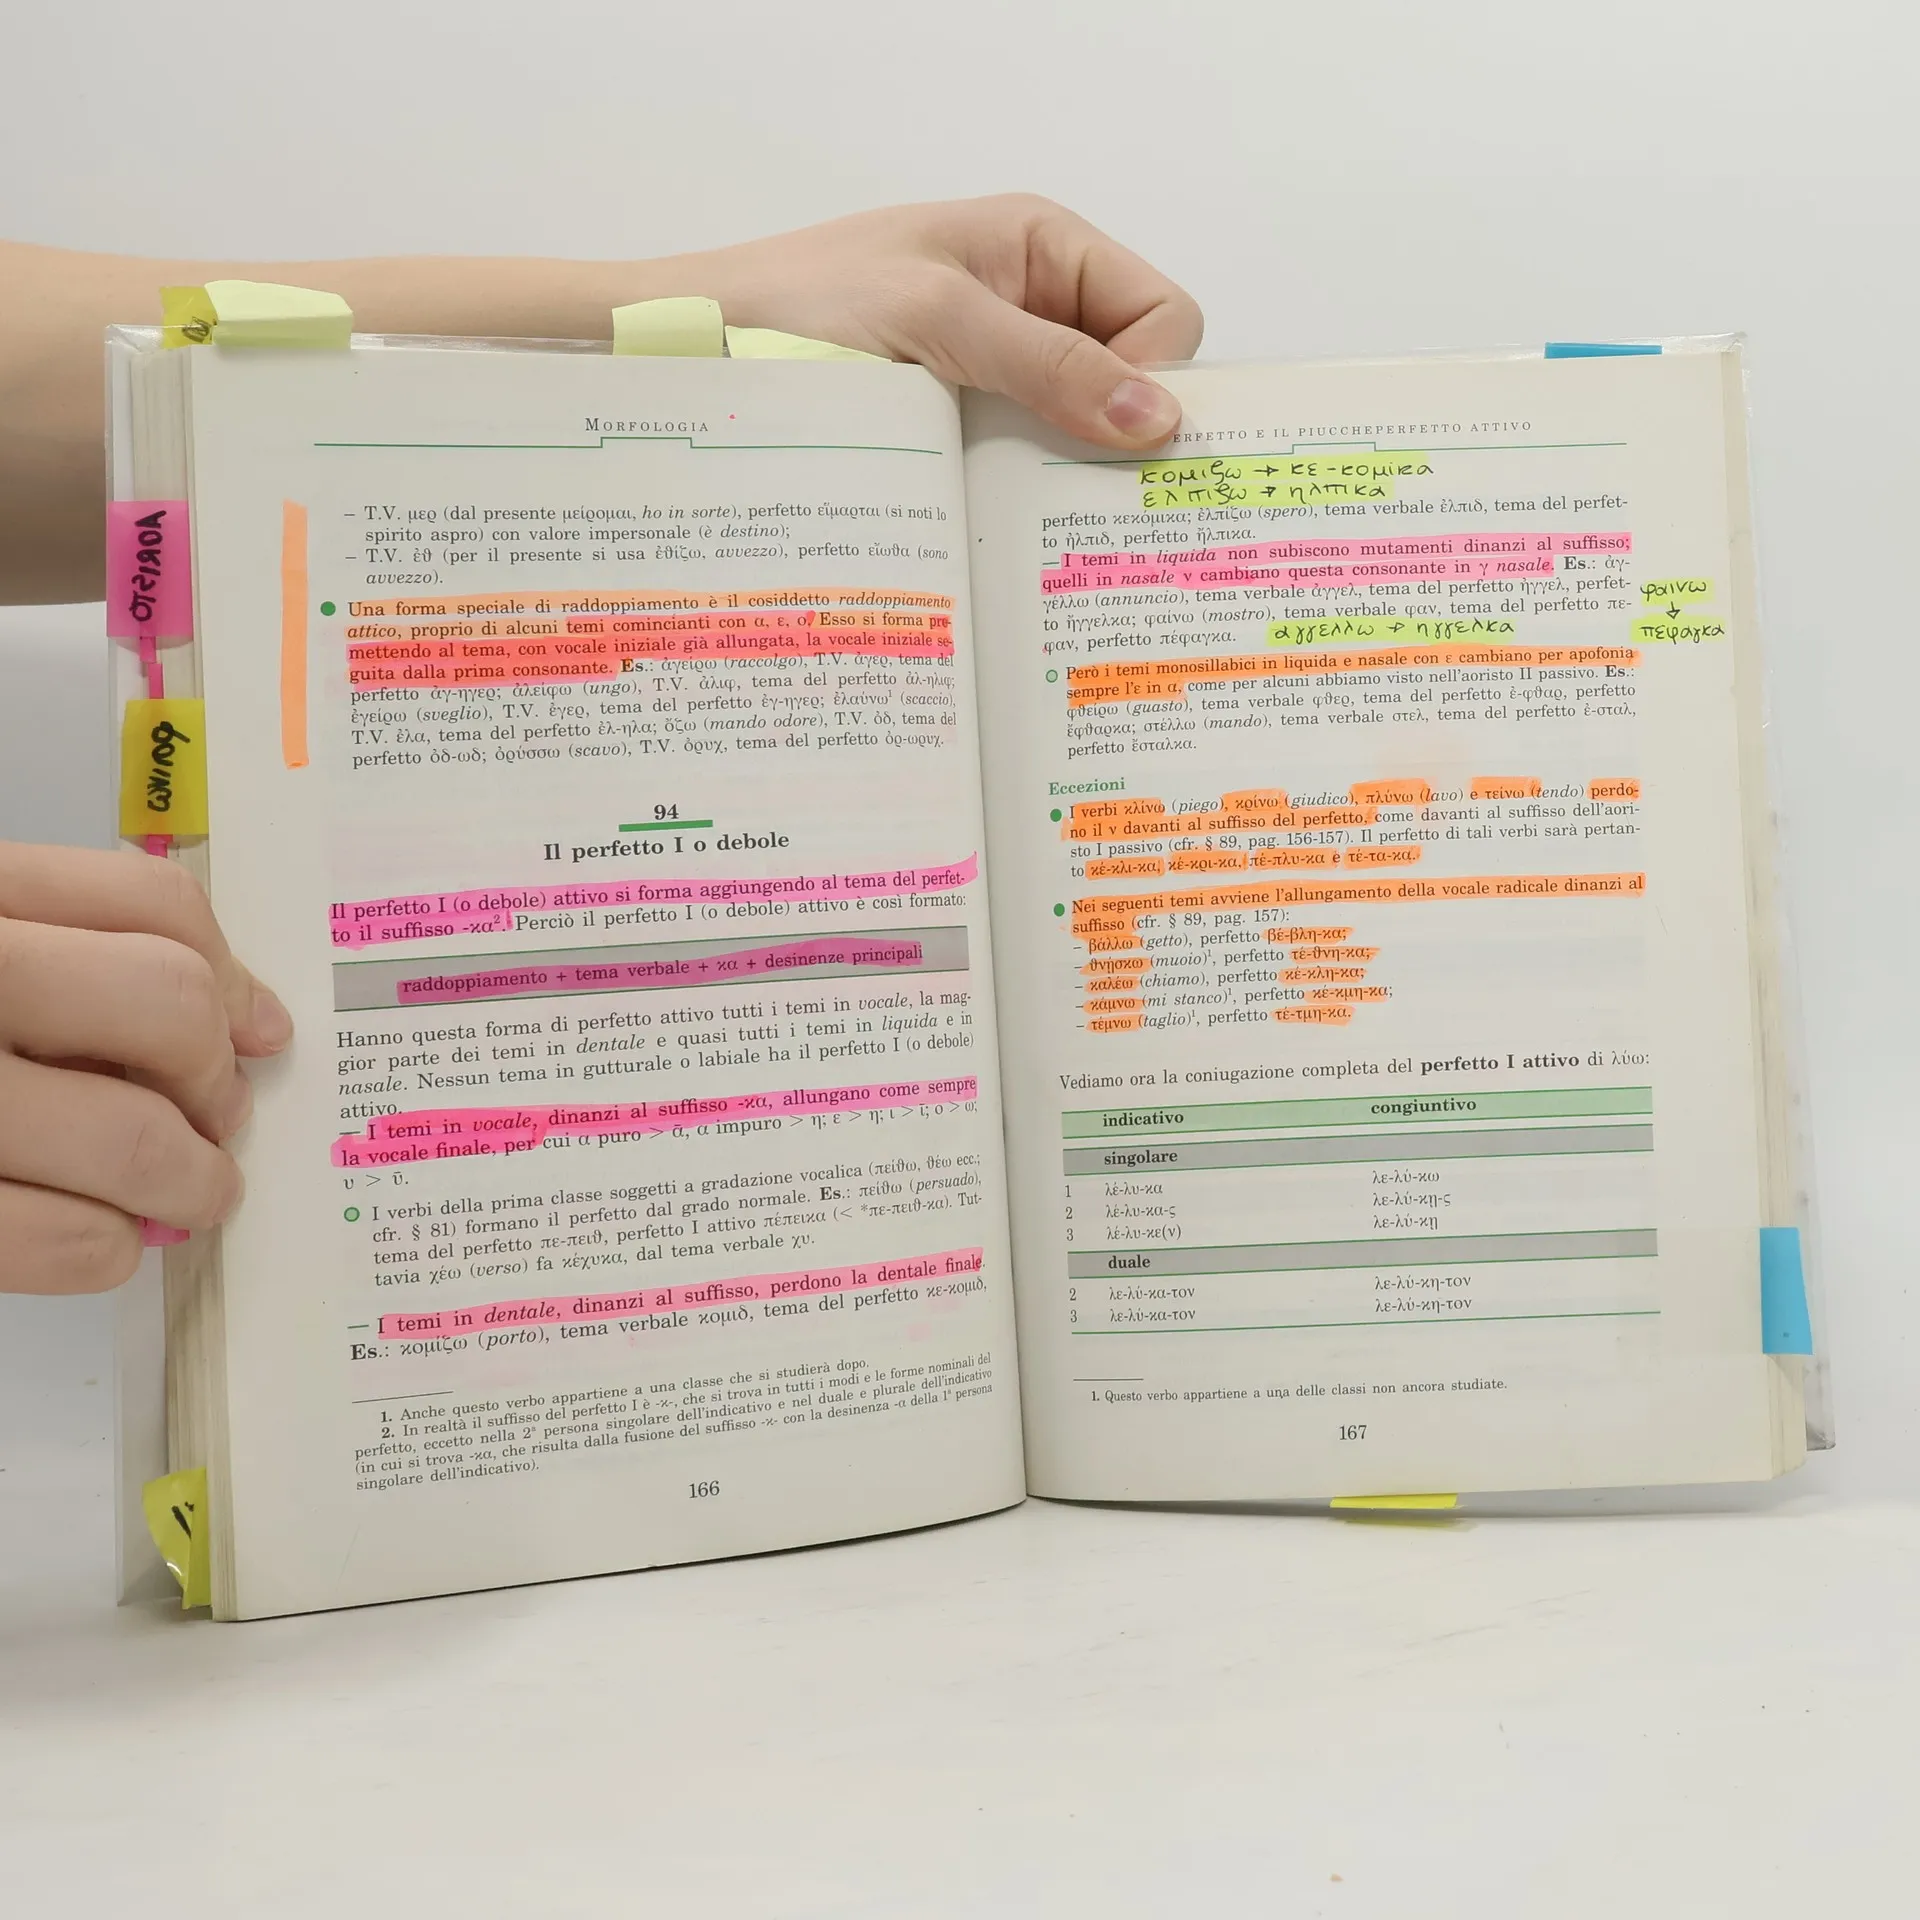 AORISTO
MORFOLOGIA
– T.V. μερ (dal presente μείρομαι, ho in sorte), perfetto εἵμαρται (si noti lo
spirito aspro) con valore impersonale (è destino);
– T.V. ἐθ (per il presente si usa ἐθίζω, avvezzo), perfetto εἴωθα (sono
avvezzo).
Una forma speciale di raddoppiamento è il cosiddetto raddoppiamento
attico, proprio di alcuni temi comincianti con α, ε, ο. Esso si forma pre-
mettendo al tema, con vocale iniziale già allungata, la vocale iniziale se-
guita dalla prima consonante. Es.: ἀγείρω (raccolgo), T.V. ἀγερ, tema del
perfetto ἀγ-ηγερ; ἀλείφω (ungo), T.V. ἀλιφ, tema del perfetto ἀλ-ηλιφ;
ἐγείρω (sveglio), T.V. ἐγερ, tema del perfetto ἐγ-ηγερ; ἐλαύνω¹ (scaccio),
T.V. ἐλα, tema del perfetto ἐλ-ηλα; ὄζω (mando odore), T.V. ὀδ, tema del
perfetto ὀδ-ωδ; ὀρύσσω (scavo), T.V. ὀρυχ, tema del perfetto ὀρ-ωρυχ.
94
Il perfetto I o debole
Il perfetto I (o debole) attivo si forma aggiungendo al tema del perfet-
to il suffisso -κα². Perciò il perfetto I (o debole) attivo è così formato:
raddoppiamento + tema verbale + κα + desinenze principali
Hanno questa forma di perfetto attivo tutti i temi in vocale, la mag-
gior parte dei temi in dentale e quasi tutti i temi in liquida e in
nasale. Nessun tema in gutturale o labiale ha il perfetto I (o debole)
attivo.
— I temi in vocale, dinanzi al suffisso -κα, allungano come sempre
la vocale finale, per cui α puro > ᾱ, α impuro > η; ε > η; ι > ῑ; ο > ω;
υ > ῡ.
I verbi della prima classe soggetti a gradazione vocalica (πείθω, θέω ecc.;
cfr. § 81) formano il perfetto dal grado normale. Es.: πείθω (persuado),
tema del perfetto πε-πειθ, perfetto I attivo πέπεικα (< *πε-πειθ-κα). Tut-
tavia χέω (verso) fa κέχυκα, dal tema verbale χυ.
— I temi in dentale, dinanzi al suffisso, perdono la dentale finale.
Es.: κομίζω (porto), tema verbale κομιδ, tema del perfetto κε-κομιδ,
1. Anche questo verbo appartiene a una classe che si studierà dopo.
2. In realtà il suffisso del perfetto I è -κ-, che si trova in tutti i modi e le forme nominali del
perfetto, eccetto nella 2ª persona singolare dell'indicativo e nel duale e plurale dell'indicativo
(in cui si trova -κα, che risulta dalla fusione del suffisso -κ- con la desinenza -α della 1ª persona
singolare dell'indicativo).
166
ERFETTO E IL PIUCCHEPERFETTO ATTIVO
κομιζω → κε-κομικα
ελπιζω → ηλπικα
perfetto κεκόμικα; ἐλπίζω (spero), tema verbale ἐλπιδ, tema del perfet-
to ἠλπιδ, perfetto ἤλπικα.
— I temi in liquida non subiscono mutamenti dinanzi al suffisso;
quelli in nasale ν cambiano questa consonante in γ nasale. Es.: ἀγ-
γέλλω (annuncio), tema verbale ἀγγελ, tema del perfetto ἠγγελ, perfet-
to ἤγγελκα; φαίνω (mostro), tema verbale φαν, tema del perfetto πε-
φαν, perfetto πέφαγκα.
αγγελλω → ηγγελκα
φαινω
↓
πεφαγκα
Però i temi monosillabici in liquida e nasale con ε cambiano per apofonia
sempre l'ε in α, come per alcuni abbiamo visto nell'aoristo II passivo. Es.:
φθείρω (guasto), tema verbale φθερ, tema del perfetto ἐ-φθαρ, perfetto
ἔφθαρκα; στέλλω (mando), tema verbale στελ, tema del perfetto ἐ-σταλ,
perfetto ἔσταλκα.
Eccezioni
I verbi κλίνω (piego), κρίνω (giudico), πλύνω (lavo) e τείνω (tendo) perdo-
no il ν davanti al suffisso del perfetto, come davanti al suffisso dell'aori-
sto I passivo (cfr. § 89, pag. 156-157). Il perfetto di tali verbi sarà pertan-
to κέ-κλι-κα, κέ-κρι-κα, πέ-πλυ-κα e τέ-τα-κα.
Nei seguenti temi avviene l'allungamento della vocale radicale dinanzi al
suffisso (cfr. § 89, pag. 157):
– βάλλω (getto), perfetto βέ-βλη-κα;
– θνήσκω (muoio)¹, perfetto τέ-θνη-κα;
– καλέω (chiamo), perfetto κέ-κλη-κα;
– κάμνω (mi stanco)¹, perfetto κέ-κμη-κα;
– τέμνω (taglio)¹, perfetto τέ-τμη-κα.
Vediamo ora la coniugazione completa del perfetto I attivo di λύω:
indicativo congiuntivo
singolare
1 λέ-λυ-κα λε-λύ-κω
2 λέ-λυ-κα-ς λε-λύ-κῃ-ς
3 λέ-λυ-κε(ν) λε-λύ-κῃ
duale
2 λε-λύ-κα-τον λε-λύ-κη-τον
3 λε-λύ-κα-τον λε-λύ-κη-τον
1. Questo verbo appartiene a una delle classi non ancora studiate.
167